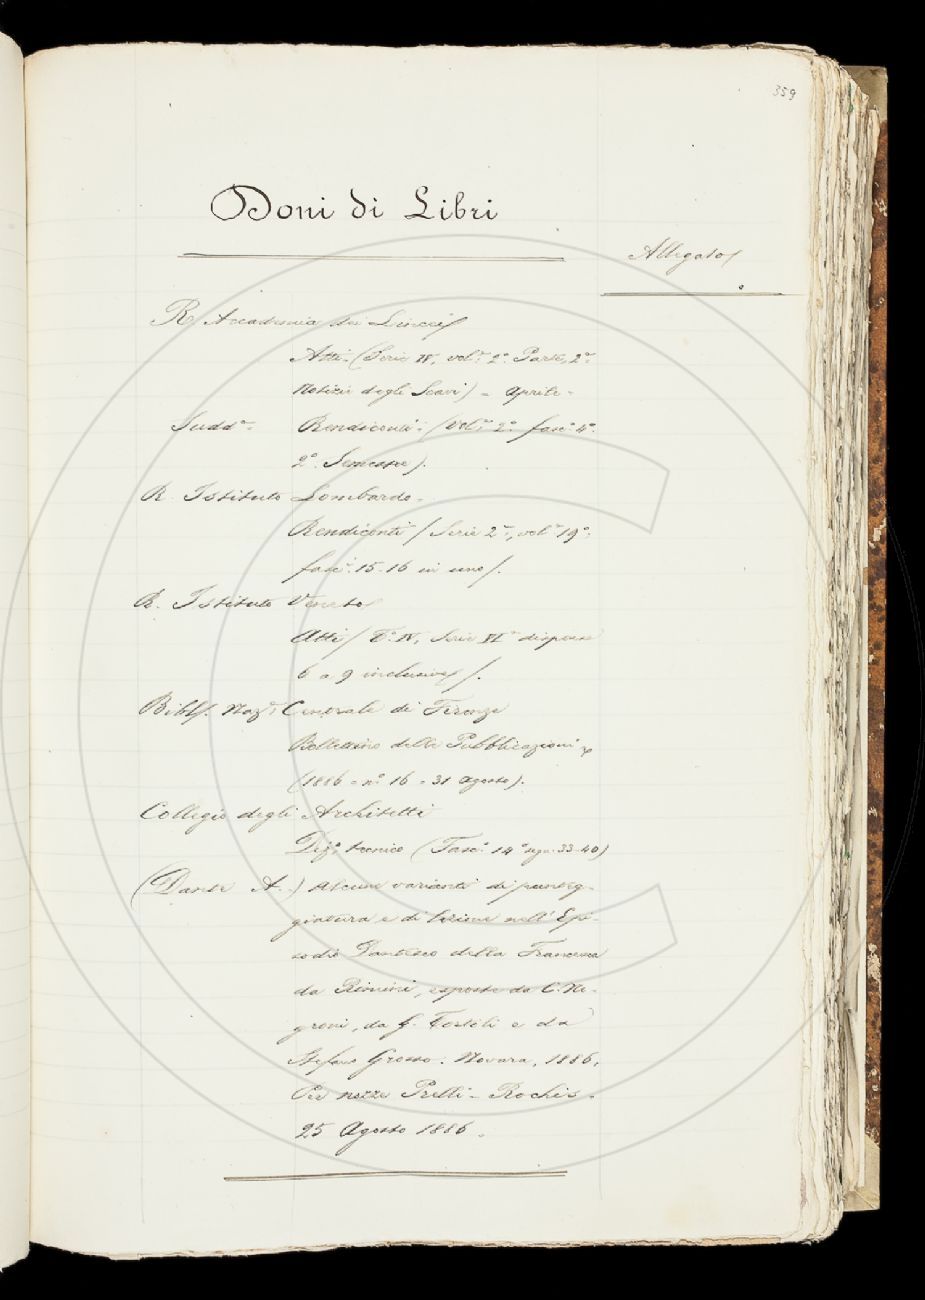 359
Doni di Libri
Allegato
R. Accademia dei Lincei
Atti. (Serie IV, vol.e 2.o Parte 2.a
Notizie degli Scavi) - Aprile -
Sudd.a - Rendiconti - (Vol.e 2.o fasc.o 4.o
2.o Semestre).
R. Istituto Lombardo -
Rendiconti (Serie 2.a, vol.e 19.o,
fasc.i 15-16 in uno).
R. Istituto Veneto
Atti (T.o IV, Serie VI.a dispense
6 a 9 inclusive).
Bibl. Naz.e Centrale di Firenze
Bollettino delle Pubblicazioni
(1886 - n.o 16 - 31 Agosto).
Collegio degli Architetti
tecnico (Fasc.o 14.o 33-40)
(Dante A.) Alcune varianti di punteg-
giatura e di lezione nell' Epi-
sodio Dantesco della Francesca
da Rimini, esposte da C. Ne-
groni, da G. Tortoli e da
Stefano Grosso. Novara, 1886.
Per nozze - Rochis.
25 Agosto 1886.